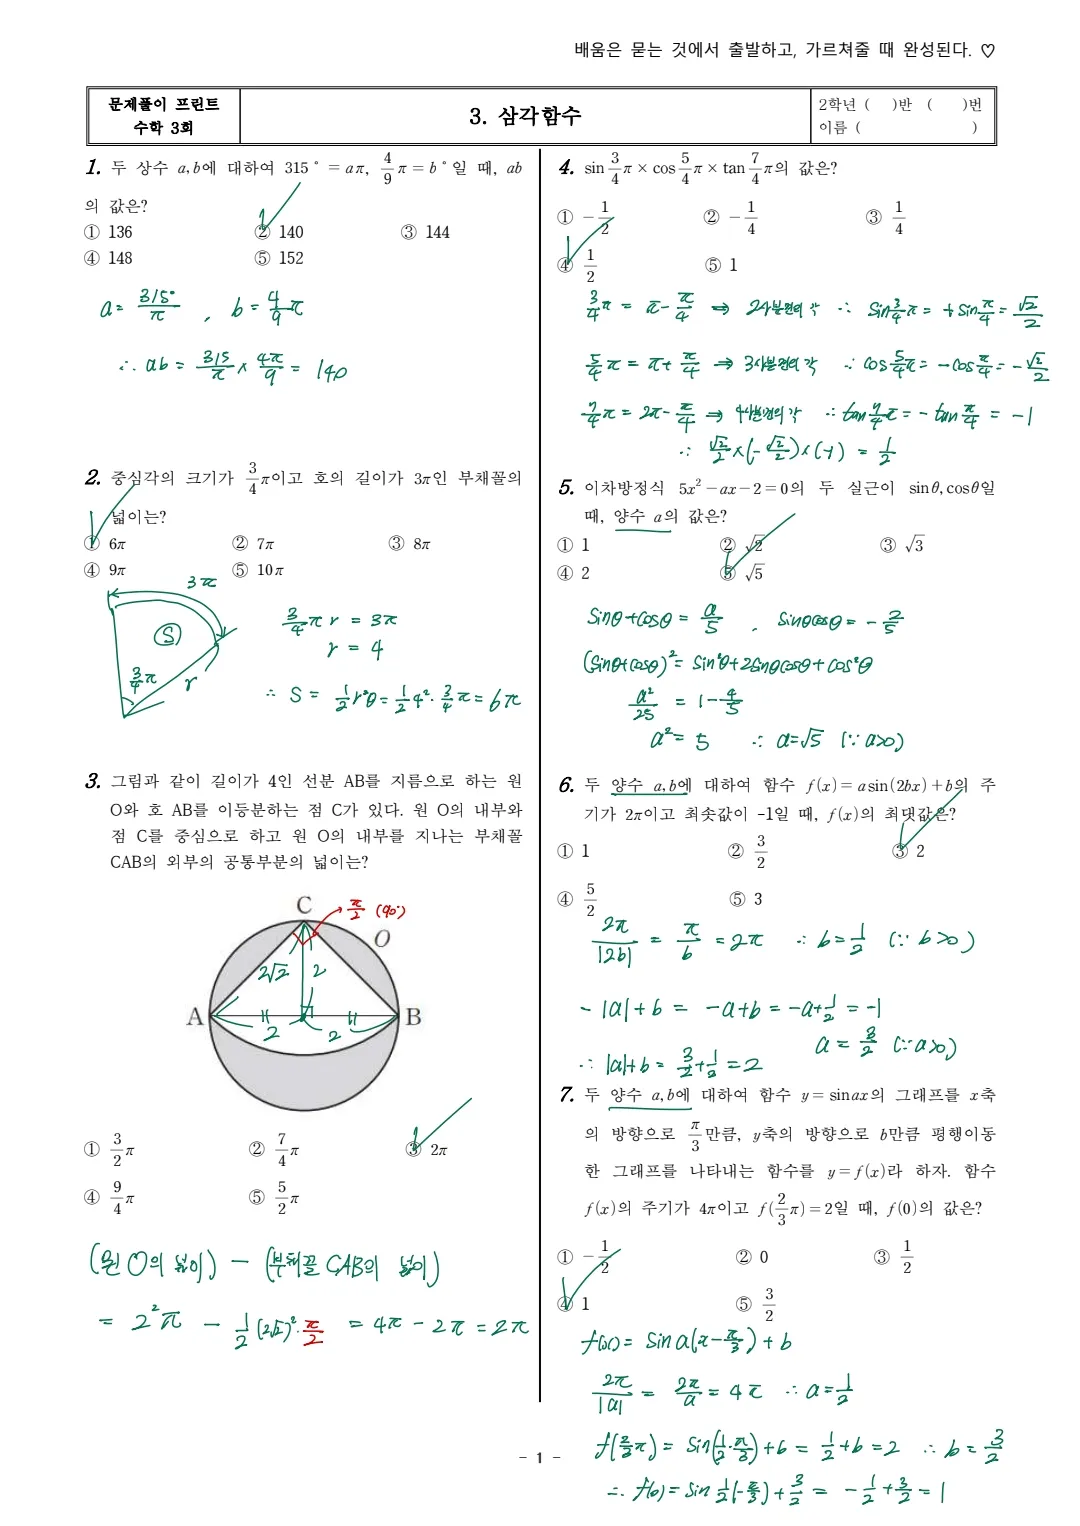 배움은 묻는 것에서 출발하고, 가르쳐줄 때 완성된다. ♡
문제풀이 프린트
수학 3회
3. 삼각함수
2학년 (   )반 (   )번
이름 (   )
1. 두 상수 a, b에 대하여 315° = aπ, 4/9 π = b°일 때, ab
의 값은?
① 136 ② 140 ③ 144
④ 148 ⑤ 152
a = 315°/π , b = 4/9 π
∴ ab = 315/π × 4π/9 = 140
2. 중심각의 크기가 3/4 π이고 호의 길이가 3π인 부채꼴의
넓이는?
① 6π ② 7π ③ 8π
④ 9π ⑤ 10π
3π
S
3/4 π
r
3/4 π r = 3π
r = 4
∴ S = 1/2 r²θ = 1/2 4² · 3/4 π = 6π
3. 그림과 같이 길이가 4인 선분 AB를 지름으로 하는 원
O와 호 AB를 이등분하는 점 C가 있다. 원 O의 내부와
점 C를 중심으로 하고 원 O의 내부를 지나는 부채꼴
CAB의 외부의 공통부분의 넓이는?
C
π/2 (90°)
O
2√2 2
A B
2 2
① 3/2 π ② 7/4 π ③ 2π
④ 9/4 π ⑤ 5/2 π
(원 O의 넓이) - (부채꼴 CAB의 넓이)
= 2²π - 1/2 (2√2)² · π/2 = 4π - 2π = 2π
4. sin 3/4 π × cos 5/4 π × tan 7/4 π의 값은?
① -1/2 ② -1/4 ③ 1/4
④ 1/2 ⑤ 1
3/4 π = π - π/4 ⇒ 2사분면의 각 ∴ sin 3/4 π = + sin π/4 = √2/2
5/4 π = π + π/4 ⇒ 3사분면의 각 ∴ cos 5/4 π = - cos π/4 = - √2/2
7/4 π = 2π - π/4 ⇒ 4사분면의 각 ∴ tan 7/4 π = - tan π/4 = -1
∴ √2/2 × (- √2/2) × (-1) = 1/2
5. 이차방정식 5x² - ax - 2 = 0의 두 실근이 sinθ, cosθ일
때, 양수 a의 값은?
① 1 ② √2 ③ √3
④ 2 ⑤ √5
sinθ + cosθ = a/5 , sinθcosθ = - 2/5
(sinθ + cosθ)² = sin²θ + 2sinθcosθ + cos²θ
a²/25 = 1 - 4/5
a² = 5 ∴ a = √5 (∵ a>0)
6. 두 양수 a, b에 대하여 함수 f(x) = a sin(2bx) + b의 주
기가 2π이고 최솟값이 -1일 때, f(x)의 최댓값은?
① 1 ② 3/2 ③ 2
④ 5/2 ⑤ 3
2π/|2b| = π/b = 2π ∴ b = 1/2 (∵ b>0)
- |a| + b = -a + b = -a + 1/2 = -1
a = 3/2 (∵ a>0)
∴ |a| + b = 3/2 + 1/2 = 2
7. 두 양수 a, b에 대하여 함수 y = sin ax의 그래프를 x축
의 방향으로 π/3 만큼, y축의 방향으로 b만큼 평행이동
한 그래프를 나타내는 함수를 y = f(x)라 하자. 함수
f(x)의 주기가 4π이고 f(2/3 π) = 2일 때, f(0)의 값은?
① -1/2 ② 0 ③ 1/2
④ 1 ⑤ 3/2
f(x) = sin a(x - π/3) + b
2π/|a| = 2π/a = 4π ∴ a = 1/2
f(2/3 π) = sin(1/2 · π/3) + b = 1/2 + b = 2 ∴ b = 3/2
∴ f(0) = sin 1/2 (- π/3) + 3/2 = - 1/2 + 3/2 = 1
- 1 -